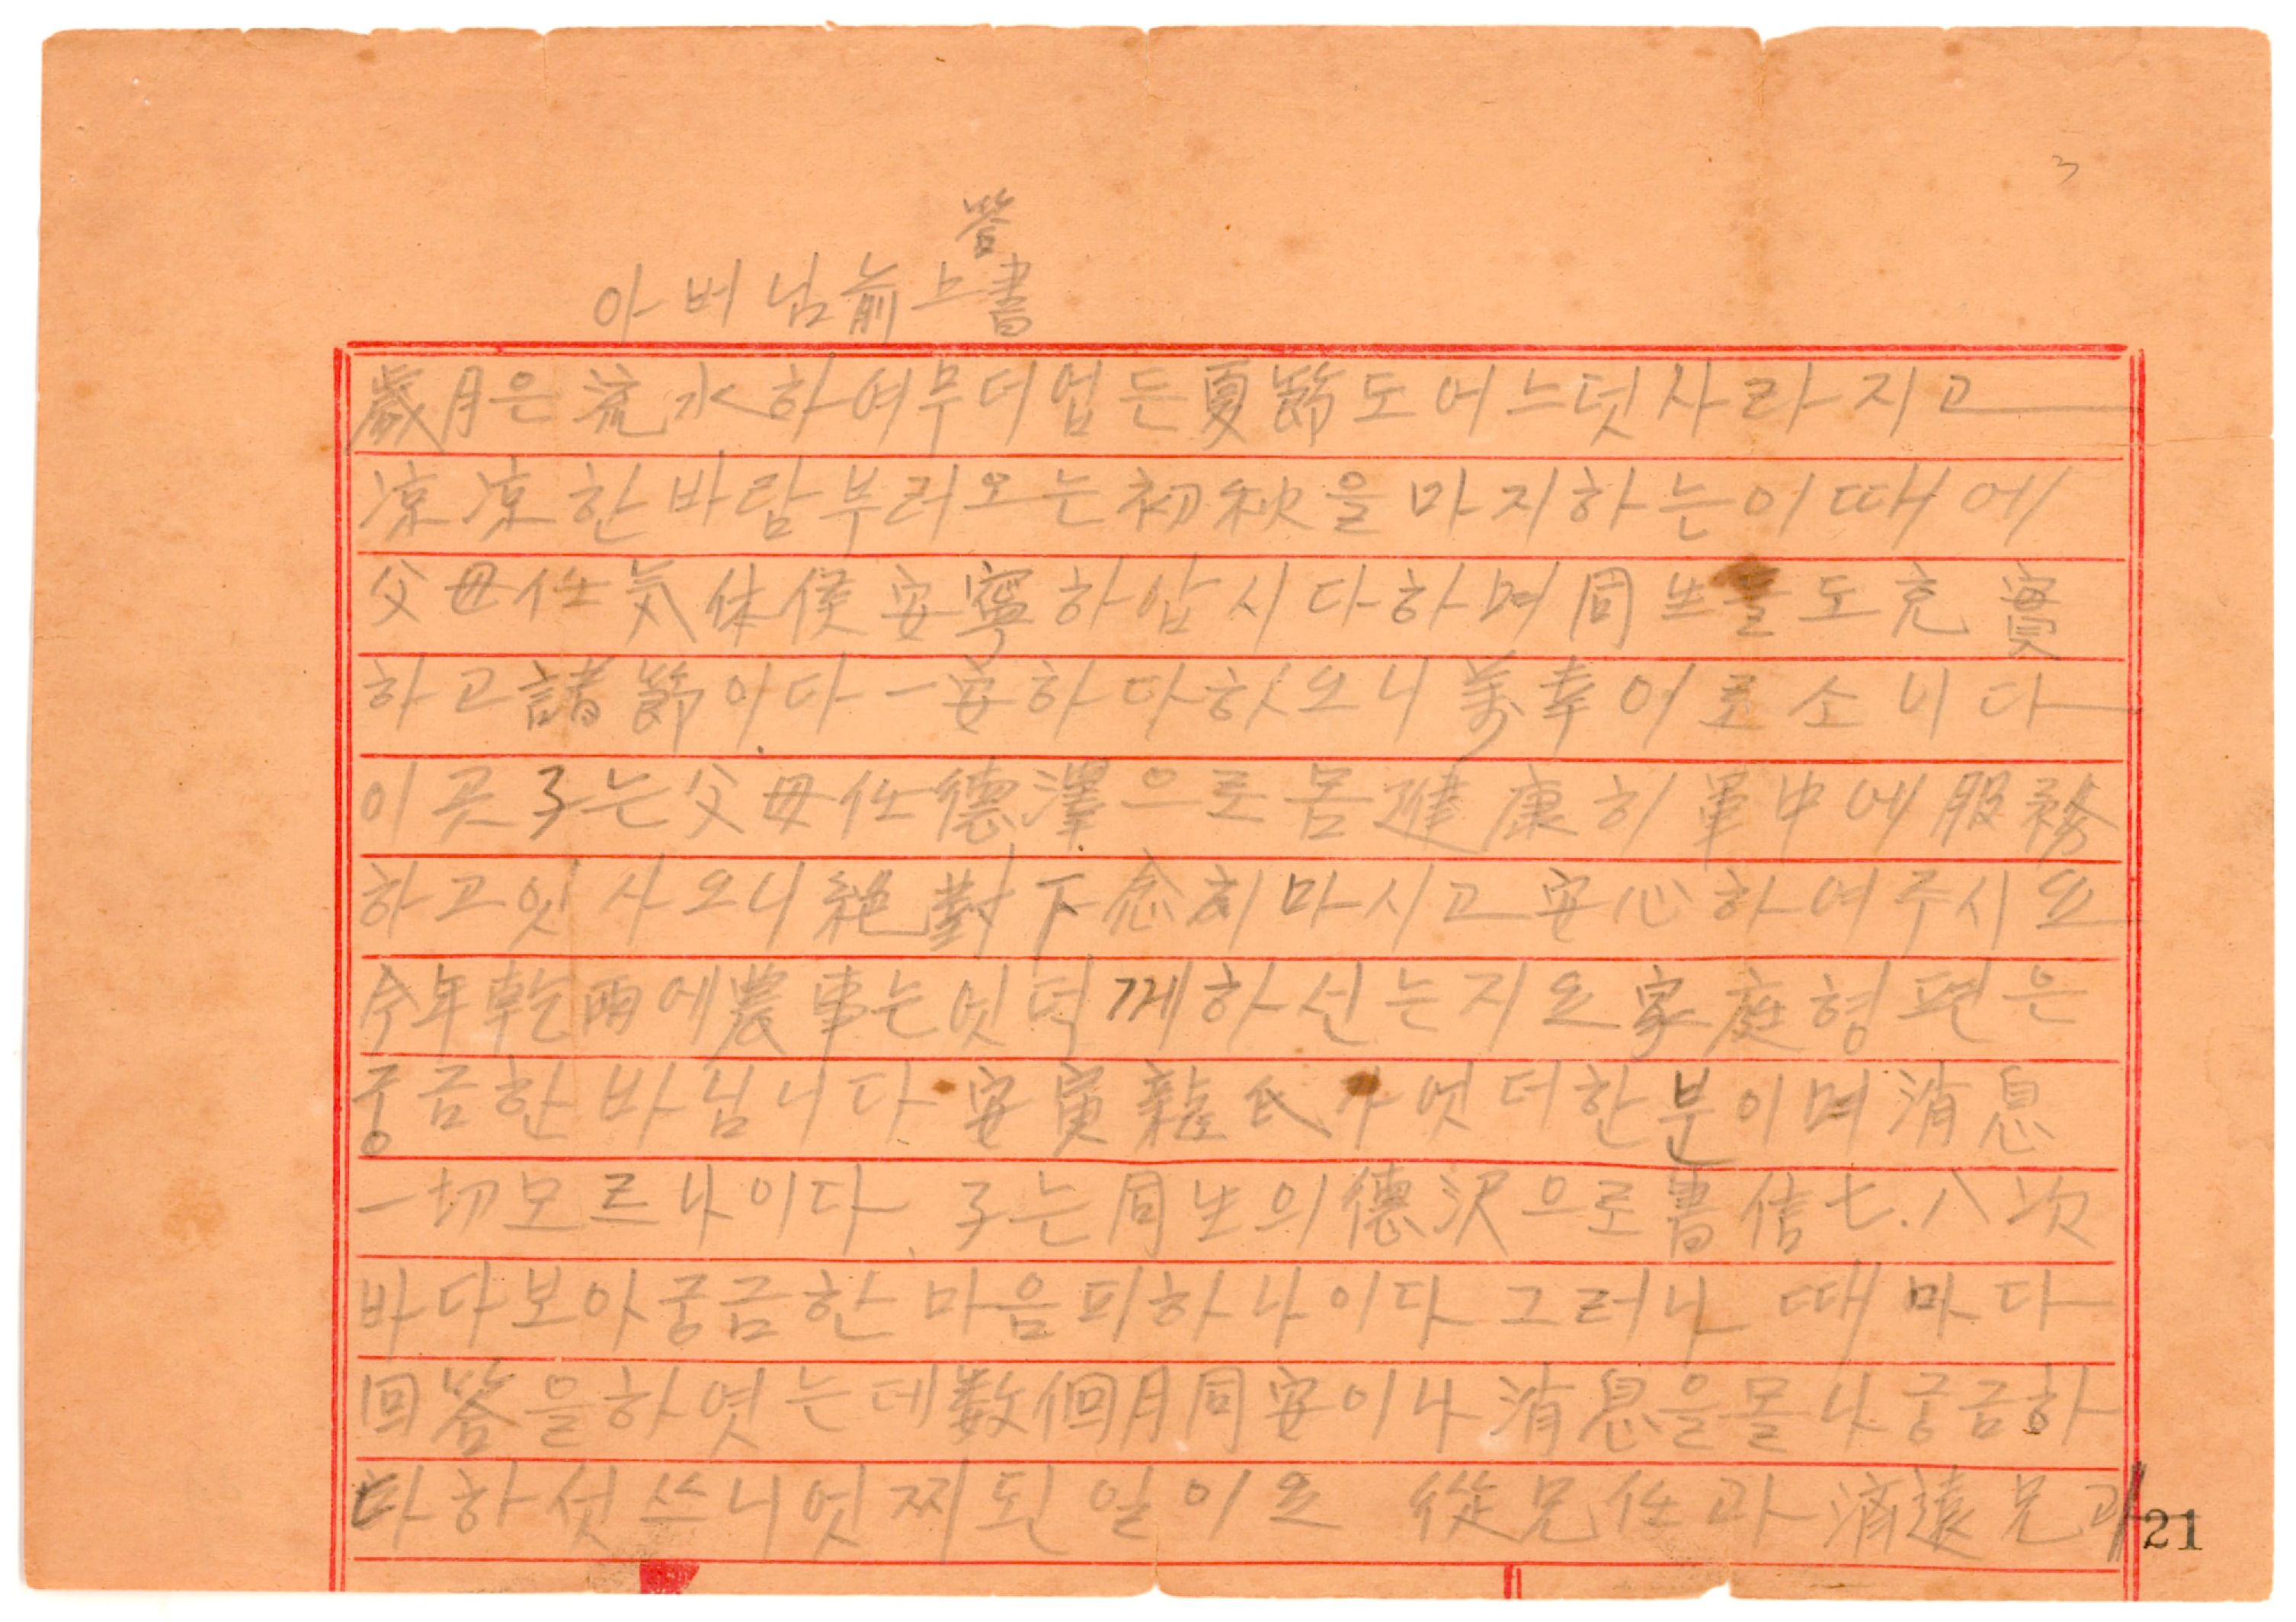 答
아버님前上書
歲月은流水하여무더업든夏節도어느덧사라지고
凉凉한바람부러오는初秋을마지하는이때에
父母任気体候安寧하압시다하며同生들도充實
하고諸節이다一安하다핫오니萬幸이로소니다
이곳子는父母任德澤으로몸健康히軍中에服務
하고잇사오니絶對下念치마시고安心하여주시요
今年乾雨에農事는엇덕께하선는지요家庭형편은
궁금한바님니다 安寅龍氏가엇더한분이며消息
一切모르나이다 子는同生의德沢으로書信七.八次
바다보아궁금한마음피하나이다 그러나 때마다
回答을하엿는데数個月同安이나消息을몰나궁금하
다하섯쓰니엇찌된일이요 從兄任과濟遠兄과
21